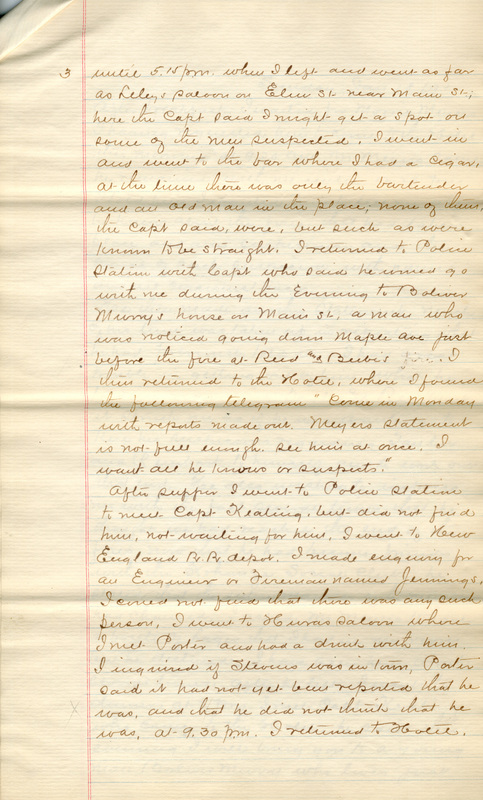 3 until 5.15 p.m. when I left and went as far
as Lileys saloon on Elm St. near Main St.;
here the Capt said I might get a spot on
some of the men suspected. I went in
and went to the bar where I had a cigar,
at the time there was only the bartender
and an old man in the place; none of them,
the Capt said, were, but such as were
known to be straight. I returned to Police
Station with Capt who said he would go
with me during the Evening to Boliver
Murry's house on Main St, a man who
was noticed going down Maple Ave just
before the fire at Reid and Beebi's fire. I
then returned to the Hotel, where I found
the following telegram "Come in Monday
with reports made out. Meyers statement
is not full enough. see him at once. I
want all he knows or suspects."
After supper I went to Police Station
to meet Capt Keating, but did not find
him, not waiting for him, I went to New
England R.R. depot. I made enquiry for
an Engineer or Fireman named Jennings,
I could not find that there was any such
person, I went to saloon where
I met Porter and had a drink with him.
I inquired if Stevens was in town, Porter
said it had not yet been reported that he
was, and that he did not think that he
was, at 9.30 p.m. I returned to Hotel.